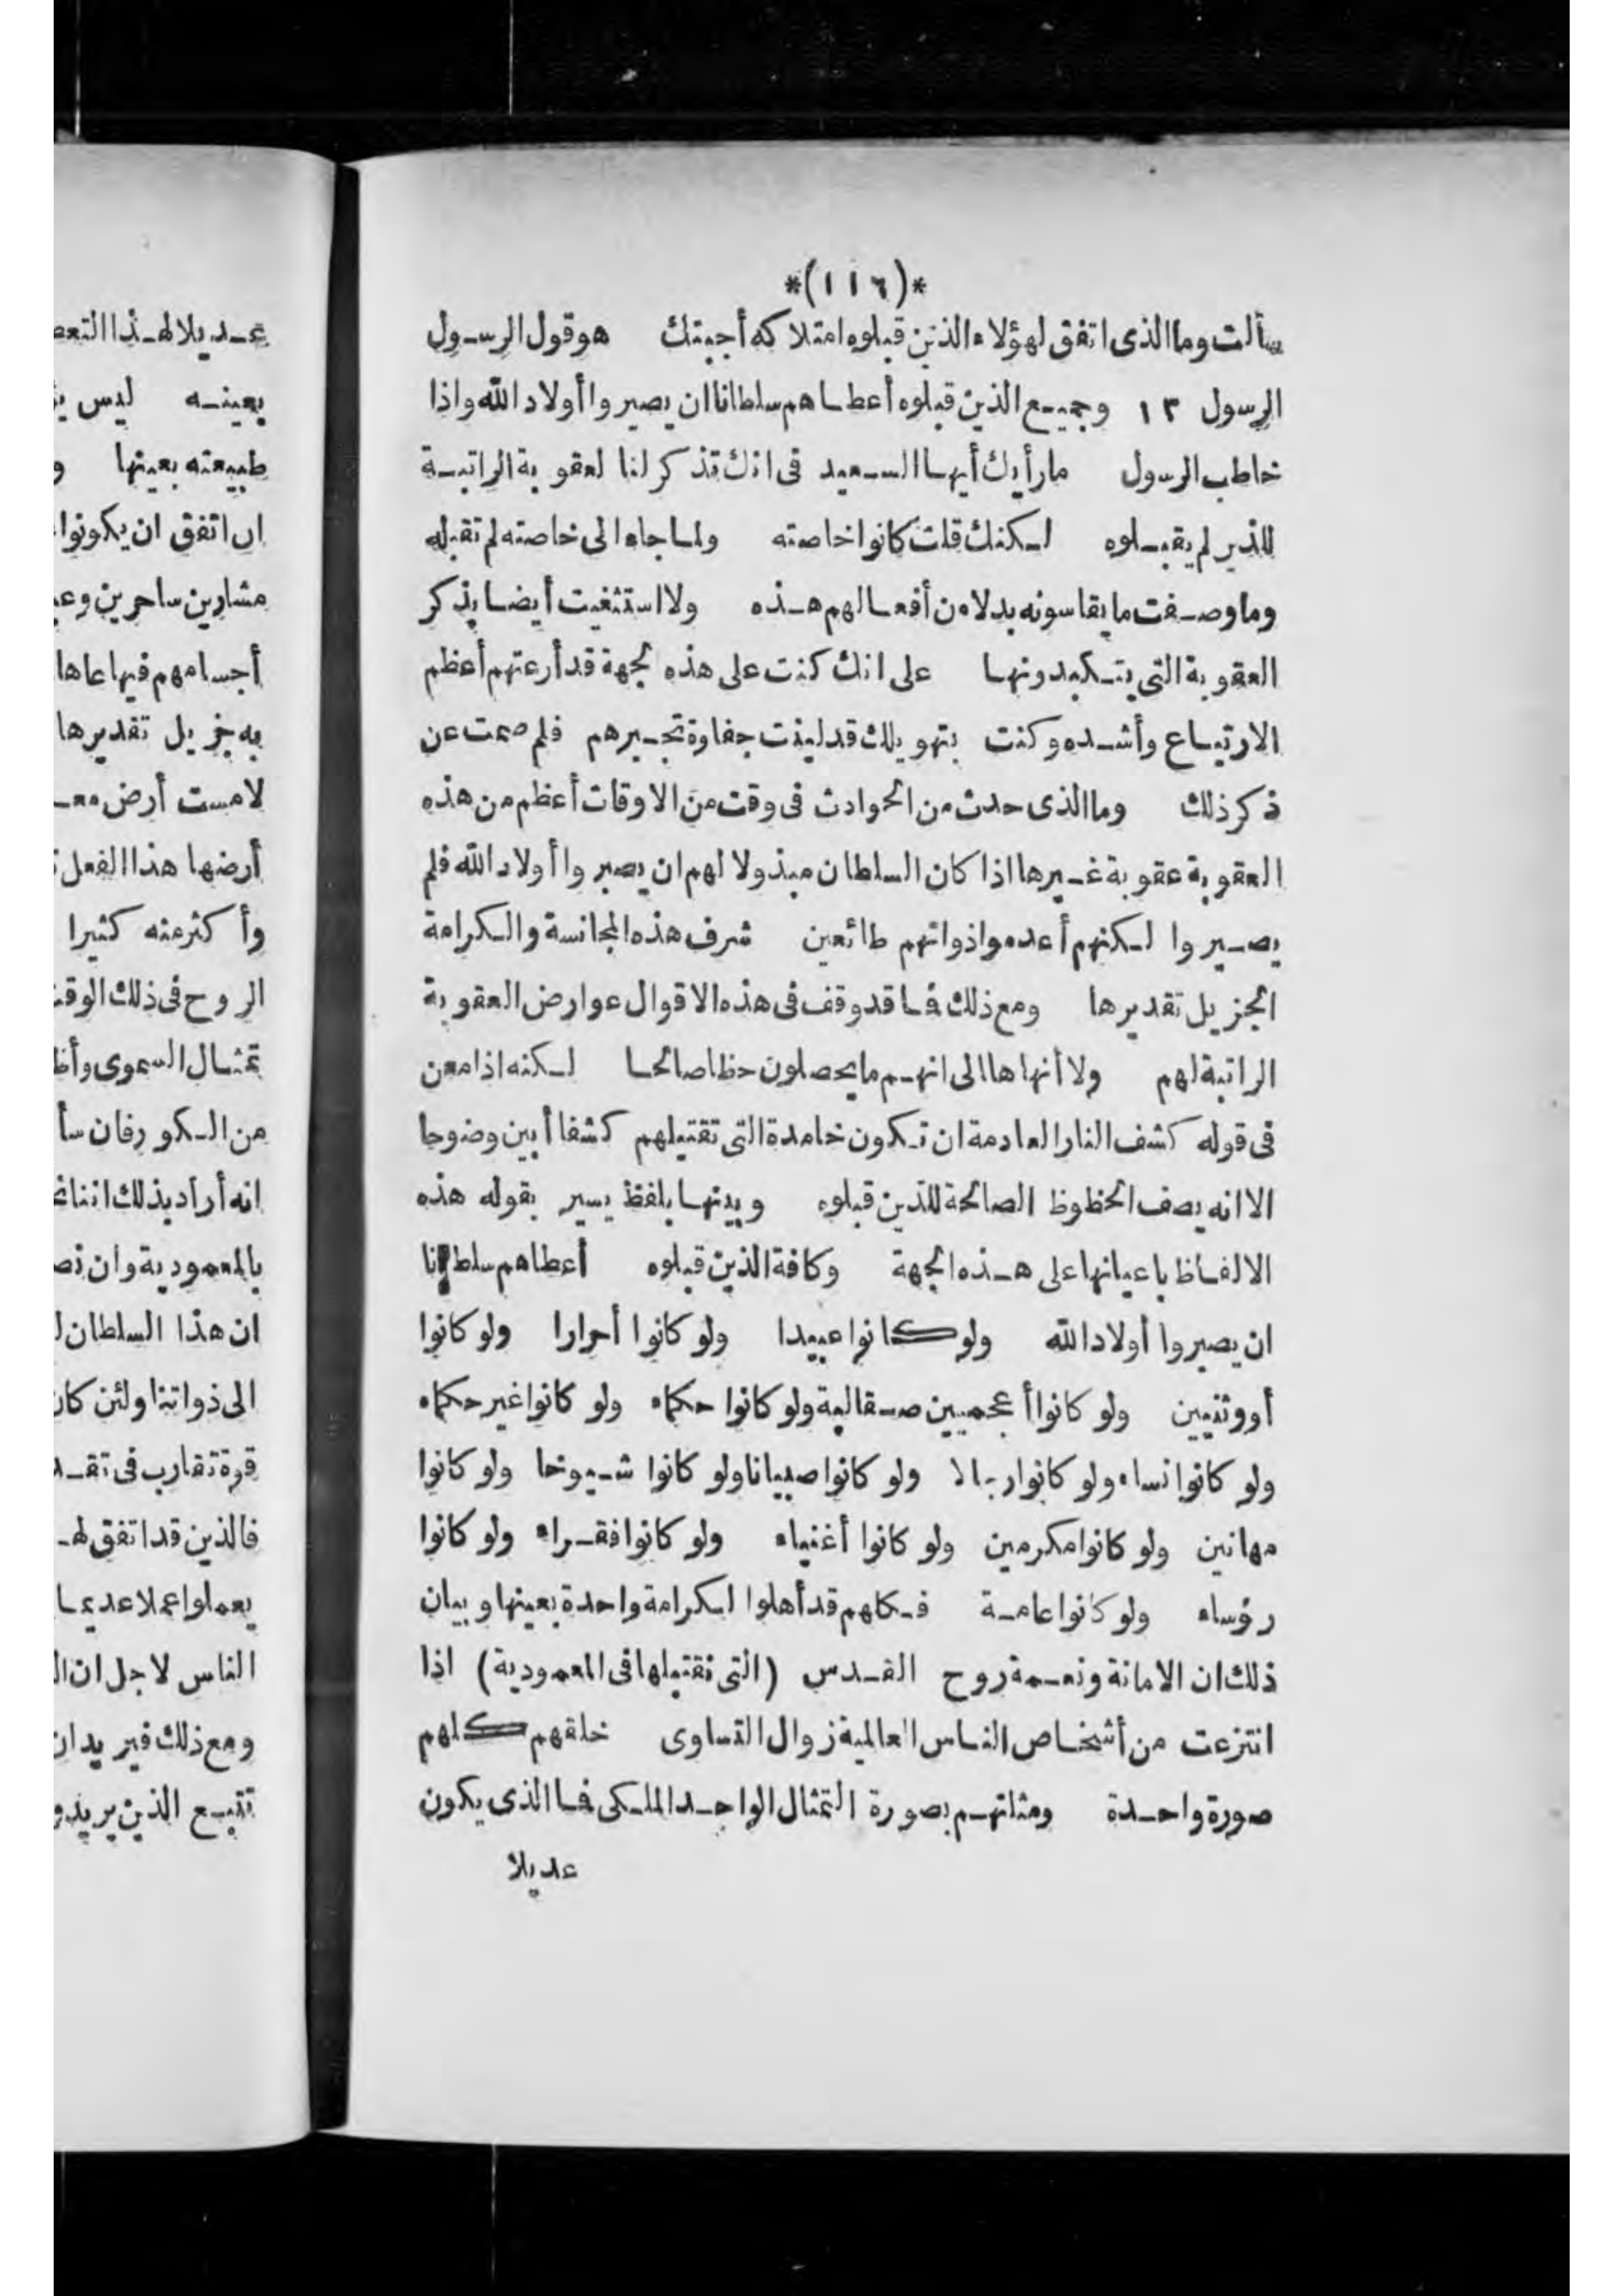 *(١١٦)*
سألت وما الذى اتفق لهؤلاء الذين قبلوه امتلاكه أجبتك هو قول الرسول
الرسول ١٢ وجميع الذين قبلوه أعطاهم سلطانا ان يصيروا أولاد الله واذا
خاطب الرسول ما رأيك أيها السعيد فى انك تذكر لنا لعقوبة الراتبة
للذين لم يقبلوه لكنك قلت كانوا خاصته ولما جاء الى خاصته لم تقبله
وما وصفت ما يقاسونه بدلا من أفعالهم هذه ولا استثنيت أيضا بذكر
العقوبة التى يتكبدونها على انك كنت على هذه لجهة قد أرعتهم أعظم
الارتياع وأشده وكنت بتهويلك قد لينت جفاوة تجبرهم فلم صمت عن
ذكر ذلك وما الذى حدث من الحوادث فى وقت من الاوقات أعظم من هذه
العقوبة عقوبة غيرها اذا كان السلطان مبذولا لهم ان يصيروا أولاد الله فلم
يصيروا لكنهم أعدموا ذواتهم طائعين شرف هذه المجانسة والكرامة
الجزيل تقديرها ومع ذلك فما قد وقف فى هذه الاقوال عوارض العقوبة
الراتبة لهم ولا أنهاها الى انهم ما يحصلون حظا صالحا لكنه اذا معن
فى قوله كشف النار العادمة ان تكون خامدة التى تقتبلهم كشفا أبين وضوحا
الا انه يصف الحظوظ الصالحة للذين قبلوه وبينها بلفظ يسير بقوله هذه
الالفاظ باعيانها على هذه الجهة وكافة الذين قبلوه أعطاهم سلطانا
ان يصيروا أولاد الله ولو كانوا عبيدا ولو كانوا أحرارا ولو كانوا
أووثنيين ولو كانوا أعجميين صقالبة ولو كانوا حكماء ولو كانوا غير حكماء
ولو كانوا نساء ولو كانوا رجالا ولو كانوا صبيانا ولو كانوا شيوخا ولو كانوا
مهانين ولو كانوا مكرمين ولو كانوا أغنياء ولو كانوا فقراء ولو كانوا
رؤساء ولو كانوا عامة فكلهم قد أهلوا لكرامة واحدة بعينها وبيان
ذلك ان الامانة ونعمة روح القدس (التى نقتبلها فى المعمودية) اذا
انتزعت من أشخاص الناس العالمية زوال التساوى خلقهم كلهم
صورة واحدة ومثلتهم بصورة التمثال الواحد الملكى فما الذى يكون
عديلا
عديلا لهذا التعط
بعينه ليس
طبيعته بعينها و
ان اتفق ان يكونوا
مشارين ساحرين
أجسامهم فيها عاها
به جزيل تقديرها
لامست أرض
أرضها هذا الفعل
وأكثر منه كثيرا
الروح فى ذلك الوقت
تمثال السموى
من الكور فان سأ
انه أراد بذلك اننا
بالمعمودية وان
ان هذا السلطان
الى ذواتنا ولئن كان
قوة تقارب فى
فالذين قد اتفق
يعملوا عملا عديما
الناس لاجل ان
ومع ذلك فيريد ان
تتبع الذين